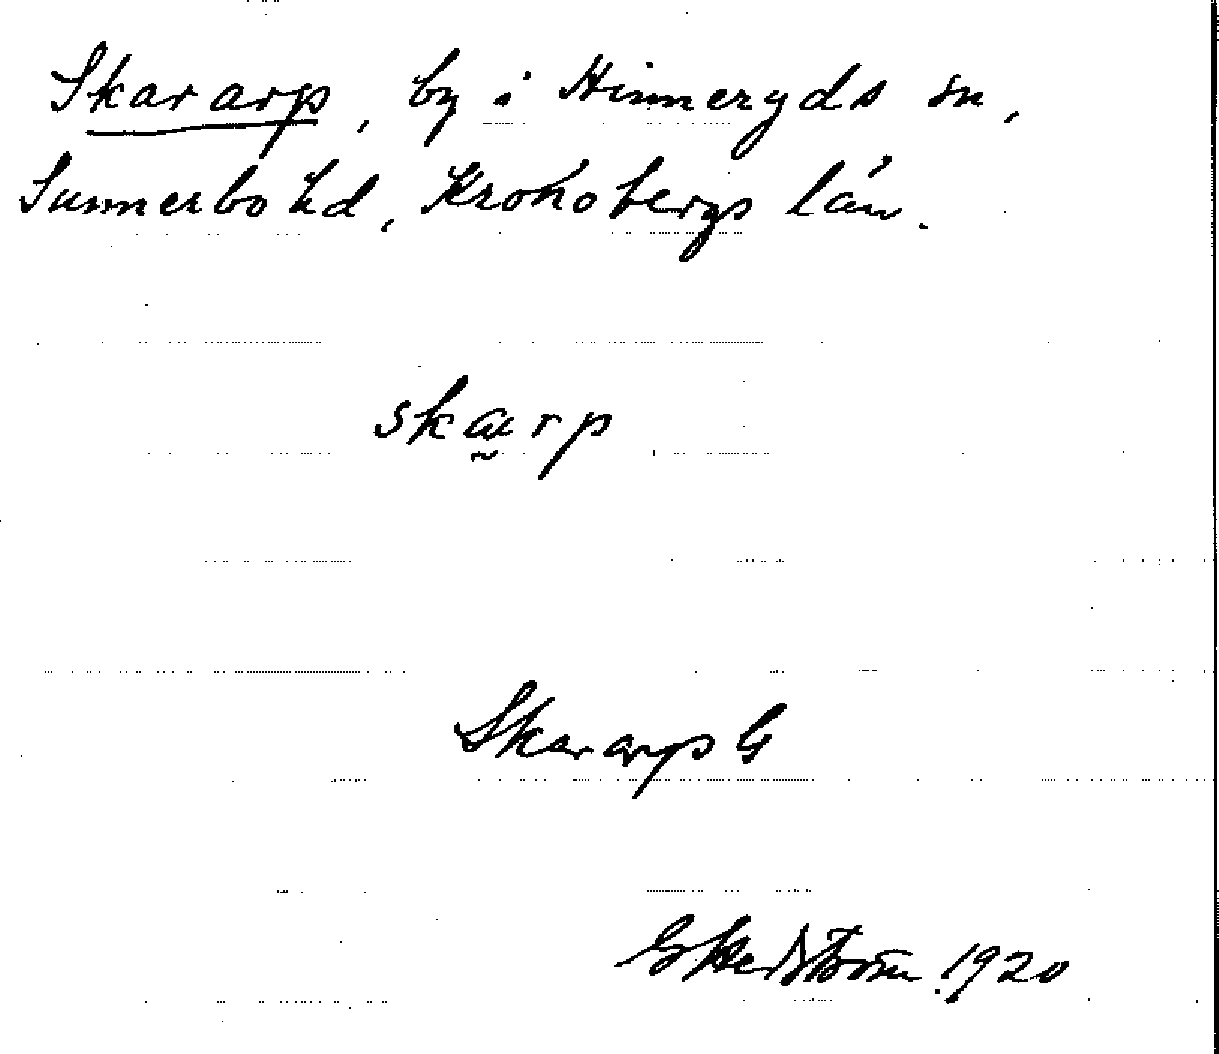 Skararp, by i Hinneryds sn,
Sunnerbo hd, Kronobergs län.
skarp
Skararp G
G Hedström. 1920